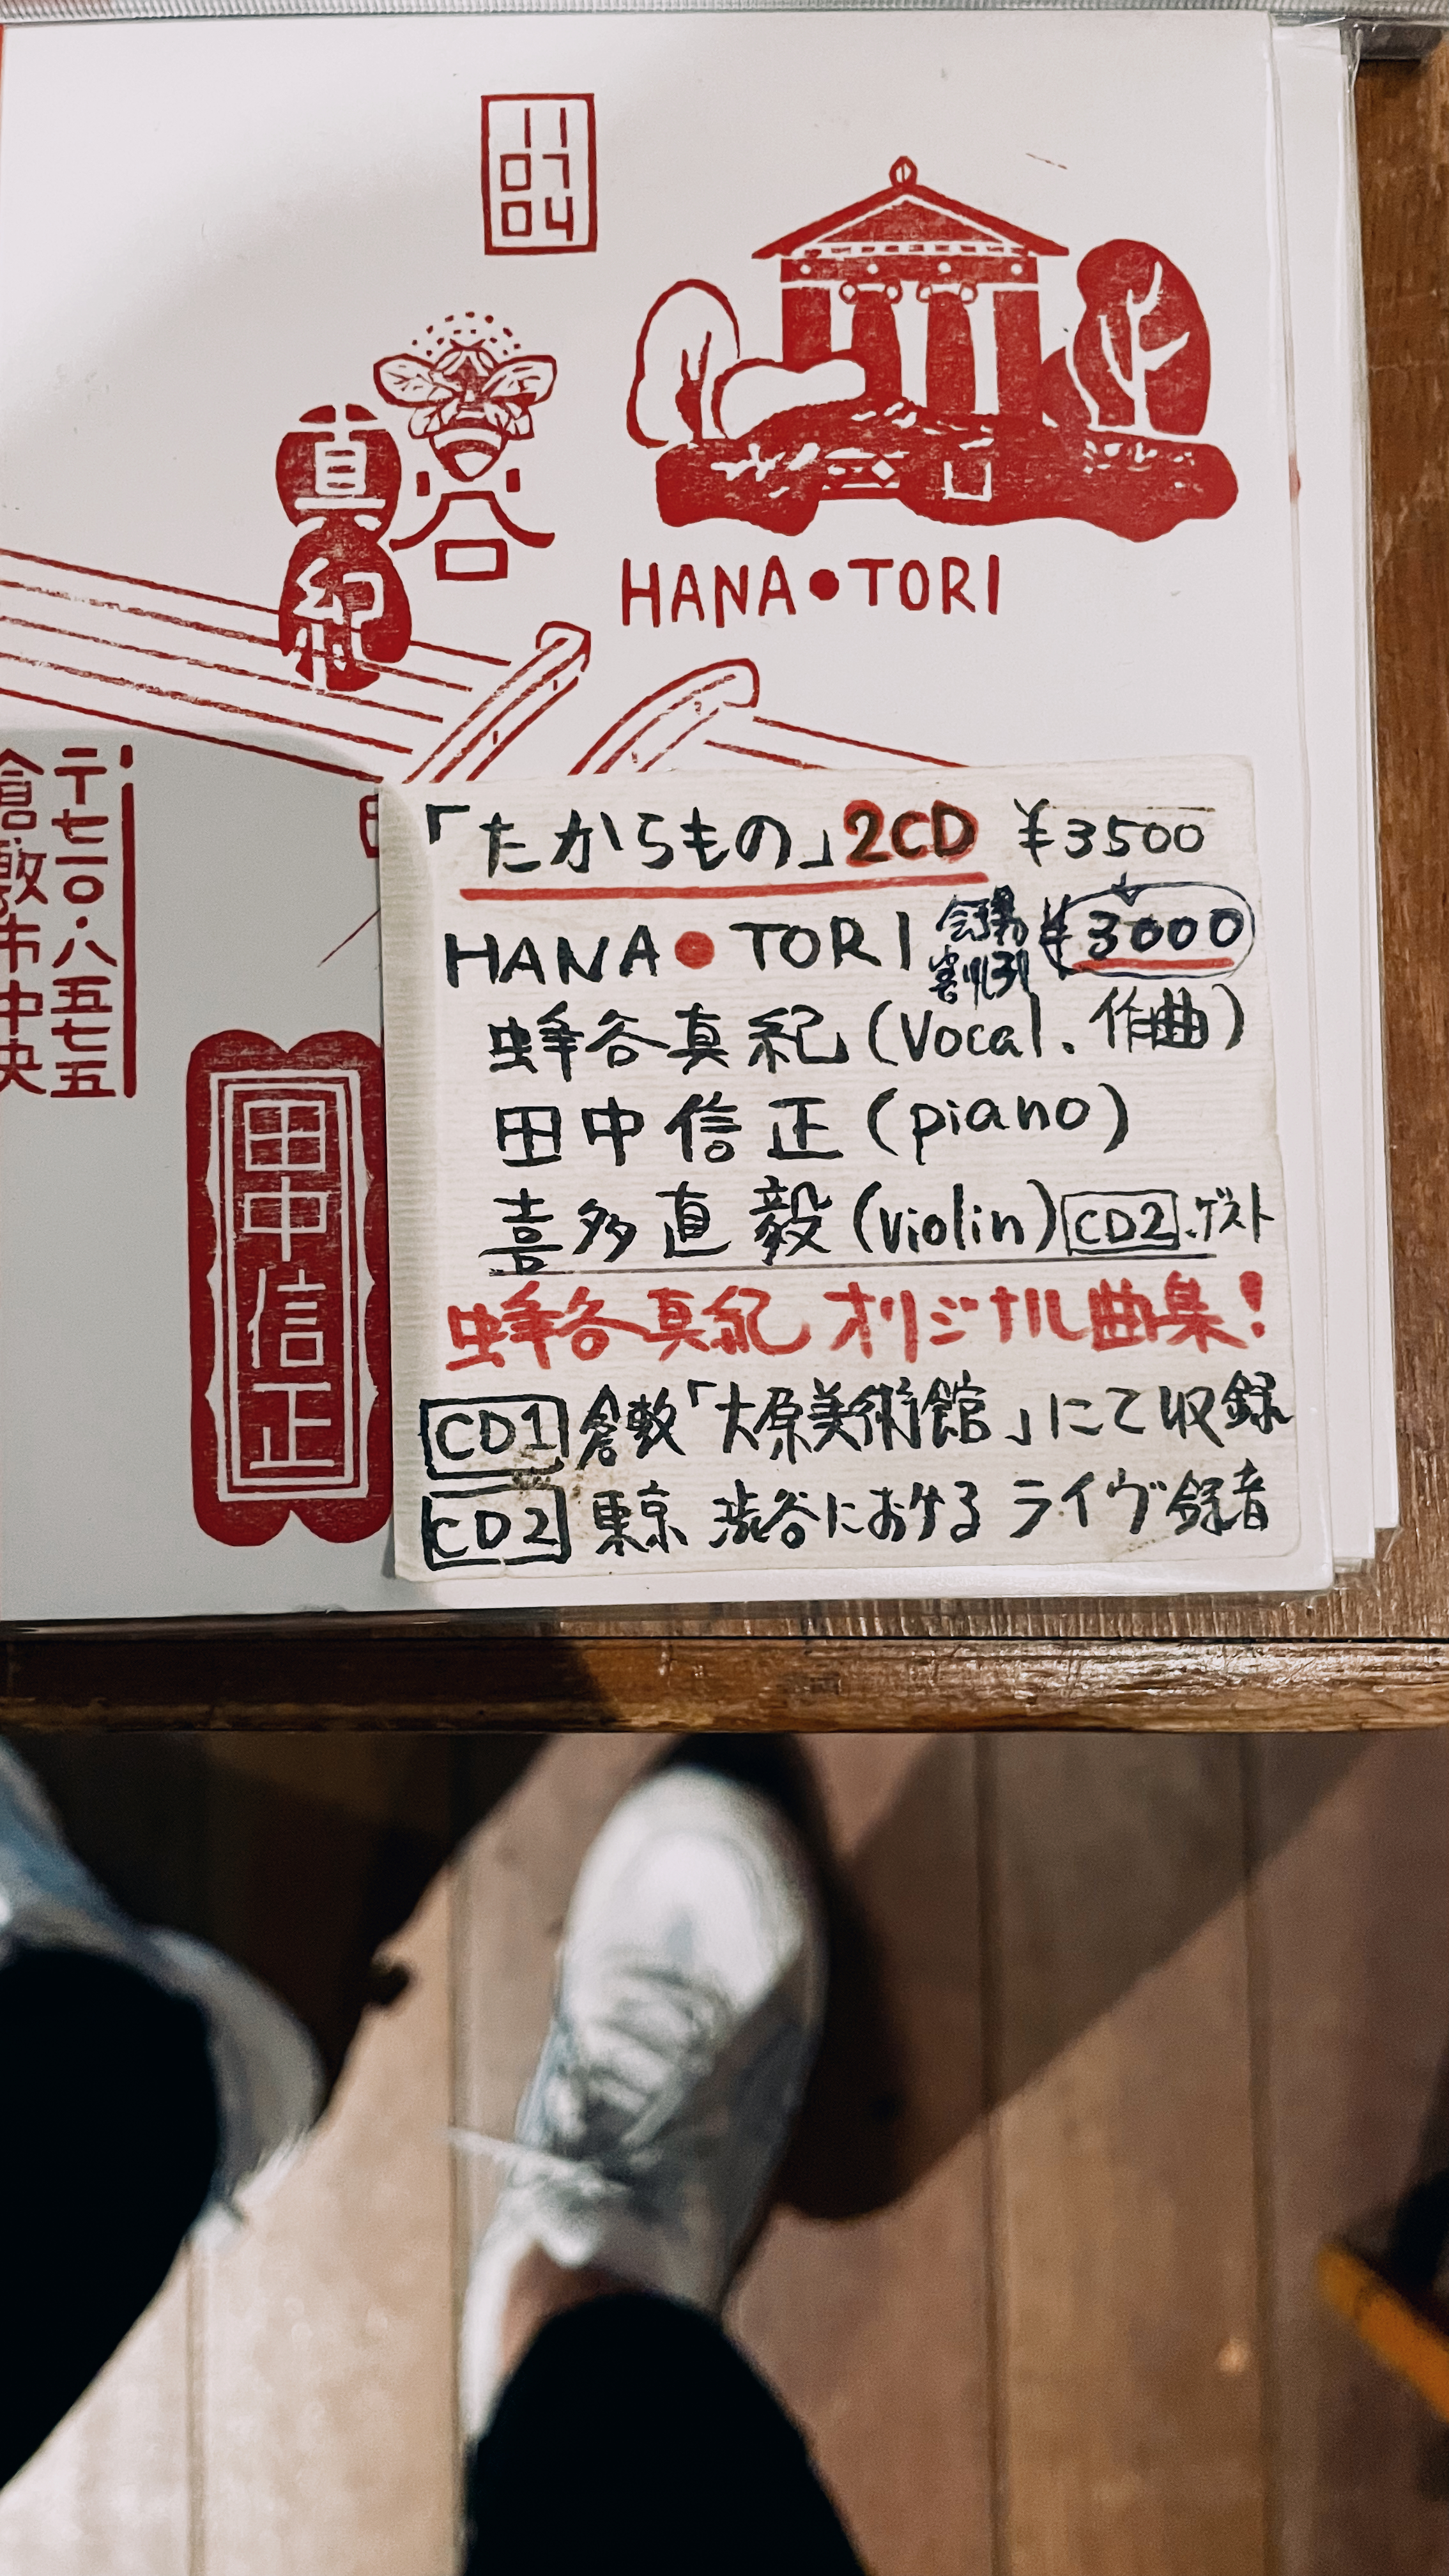 11
07
04
真紀
谷
HANA●TORI
〒七一〇・八五七五
倉敷市中央
田中信正
「たからもの」2CD ¥3500
HANA●TORI 会場割引 ¥3000
蜂谷真紀(Vocal、作曲)
田中信正(piano)
喜多直毅(violin)CD2.ゲスト
蜂谷真紀 オリジナル曲集!
CD1 倉敷「大原美術館」にて収録
CD2 東京 渋谷における ライヴ録音